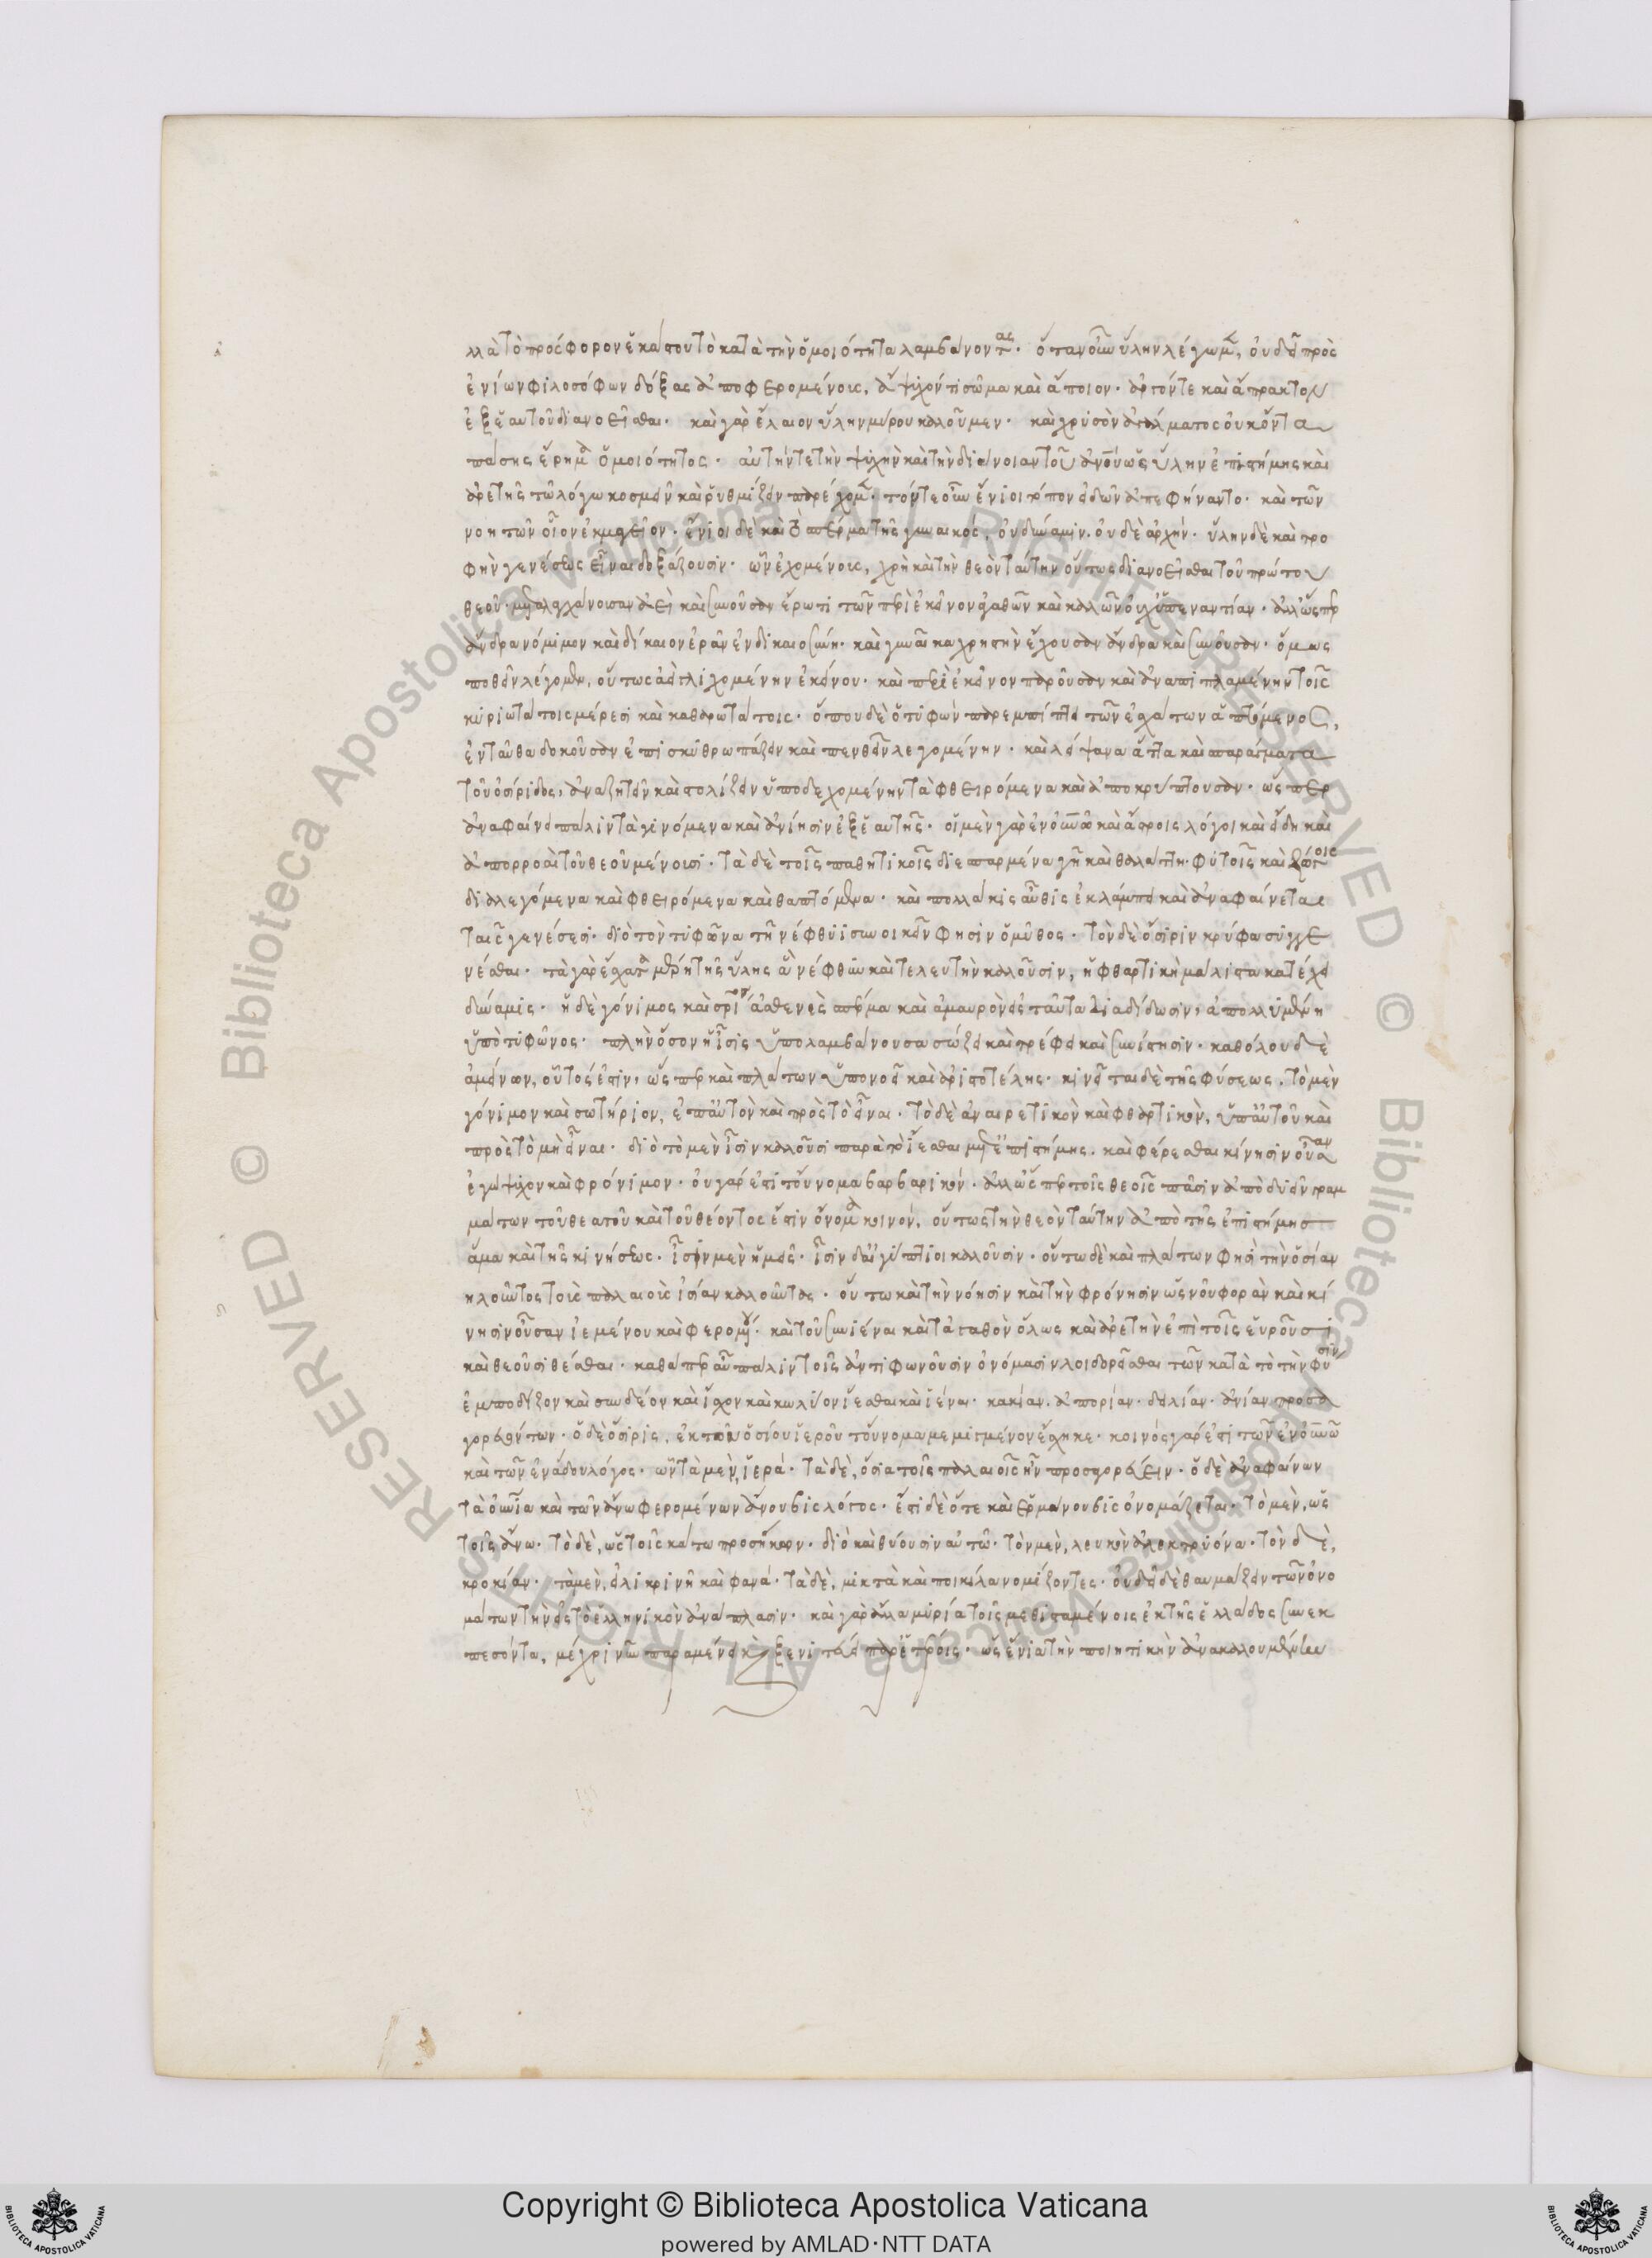 λλὰ τὸ πρόσφορον ἕκαστον τὸ κατὰ τὴν ὁμοιότητα λαμβάνοντας. ὅταν οὖν ὕλην λέγωμεν, οὐ δεῖ πρὸς
ἐνίων φιλοσόφων δόξας ἀποφερομένοις, ἄψυχόν τι σῶμα καὶ ἄποιον. ἀργόν τε καὶ ἄπρακτον
ἐξ ἑαυτοῦ διανοεῖσθαι. καὶ γὰρ ἔλαιον ὕλην μύρου καλοῦμεν. καὶ χρυσὸν ἀγάλματος οὐκ ὄντα
πάσης ἔρημα ὁμοιότητος. αὐτήν τε τὴν ψυχὴν καὶ τὴν διάνοιαν τοῦ ἀνθρώπου ὡς ὕλην ἐπιστήμης καὶ
ἀρετῆς τῷ λόγῳ κοσμεῖν καὶ ῥυθμίζειν παρέχομεν. τόν τε οὖν ἔνιοι τόπον εἰδῶν ἀπεφήναντο. καὶ τῶν
νοητῶν οἷον ἐκμαγεῖον. ἔνιοι δὲ καὶ τὸ σπέρμα τῆς γυναικός, οὐ δύναμιν. οὐδὲ ἀρχήν. ὕλην δὲ καὶ τρο
φὴν γενέσεως εἶναι δοξάζουσιν. ὧν ἐχομένοις, χρὴ καὶ τὴν θεὸν ταύτην οὕτως διανοεῖσθαι τοῦ πρώτου
θεοῦ. μεταλαγχάνουσαν ἀεὶ καὶ συνοῦσαν ἔρωτι τῶν περὶ ἐκεῖνον ἀγαθῶν καὶ καλῶν οὐχ ὑπεναντίαν. ἀλλ' ὥσπερ
ἄνδρα νόμιμον καὶ δίκαιον ἐρᾶν ἐν δικαιοσύνῃ. καὶ γυναῖκα χρηστὴν ἔχουσαν ἄνδρα καὶ συνοῦσαν. ὅμως
ποθεῖν λέγομεν, οὕτως ἀεὶ γλιχομένην ἐκείνου. καὶ περὶ ἐκεῖνον παροῦσαν καὶ ἀναπιπλαμένην τοῖς
κυριωτάτοις μέρεσι καὶ καθαρωτάτοις. ὅπου δὲ ὁ τυφὼν παρεμπίπτει τῶν ἐσχάτων ἁπτόμενος,
ἐνταῦθα δοκοῦσαν ἐπισκυθρωπάζειν καὶ πενθεῖν λεγομένην. καὶ λείψανα ἄττα καὶ σπαράγματα
τοῦ ὀσίριδος, ἀναζητεῖν καὶ στολίζειν ὑποδεχομένην τὰ φθειρόμενα καὶ ἀποκρύπτουσαν. ὥσπερ
ἀναφαίνει πάλιν τὰ γινόμενα καὶ ἀνίησιν ἐξ ἑαυτῆς. οἱ μὲν γὰρ ἐν οὐρανῷ καὶ ἄστροις λόγοι καὶ εἴδη καὶ
ἀπορροαὶ τοῦ θεοῦ μένουσι. τὰ δὲ τοῖς παθητικοῖς διεσπαρμένα γῇ καὶ θαλάττῃ. φυτοῖς καὶ ζῴοις
διαλεγόμενα καὶ φθειρόμενα καὶ θαπτόμενα. καὶ πολλάκις αὖθις ἐκλάμπει καὶ ἀναφαίνεται
ταῖς γενέσεσι. διὸ τὸν τυφῶνα τῇ νέφθυϊ συνοικεῖν φησὶν ὁ μῦθος. τὸν δὲ ὄσιριν κρύφα συγγε
νέσθαι. τὰ γὰρ ἔσχατα μέρη τῆς ὕλης ἃ νέφθυν καὶ τελευτὴν καλοῦσιν, ἡ φθαρτικὴ μάλιστα κατέχει
δύναμις. ἡ δὲ γόνιμος καὶ σωτήριος ἀσθενὲς σπέρμα καὶ ἀμαυρὸν εἰς ταῦτα διαδίδωσιν, ἀπολλύμενον
ὑπὸ τυφῶνος. πλὴν ὅσον ἡ ἶσις ὑπολαμβάνουσα σώζει καὶ τρέφει καὶ συνίστησιν. καθόλου δὲ
ἀμείνων, οὗτός ἐστιν, ὥσπερ καὶ πλάτων ὑπονοεῖ καὶ ἀριστοτέλης. κινεῖται δὲ τῆς φύσεως, τὸ μὲν
γόνιμον καὶ σωτήριον, ἐπ' αὐτὸν καὶ πρὸς τὸ εἶναι. τὸ δὲ ἀναιρετικὸν καὶ φθαρτικὸν, ὑπ' αὐτοῦ καὶ
πρὸς τὸ μὴ εἶναι. διὸ τὸ μὲν ἶσιν καλοῦσι παρὰ τὸ ἵεσθαι μετ' ἐπιστήμης. καὶ φέρεσθαι κίνησιν οὖσαν
ἔμψυχον καὶ φρόνιμον. οὐ γάρ ἐστι τοὔνομα βαρβαρικόν. ἀλλ' ὥσπερ τοῖς θεοῖς πᾶσιν ἀπὸ δυεῖν γραμ
μάτων τοῦ θεατοῦ καὶ τοῦ θέοντος ἔστιν ὄνομα κοινόν, οὕτως τὴν θεὸν ταύτην ἀπὸ τῆς ἐπιστήμης
ἅμα καὶ τῆς κινήσεως. ἶσιν μὲν ἡμεῖς. ἶσιν δ' αἰγύπτιοι καλοῦσιν. οὕτω δὲ καὶ πλάτων φησὶ τὴν ὁσίαν
δηλοῦντος τοὺς παλαιοὺς ἰσίαν καλοῦντας. οὕτω καὶ τὴν νόησιν καὶ τὴν φρόνησιν ὡς νοῦ φορὰν καὶ κί
νησιν οὖσαν ἱεμένου καὶ φερομένου. καὶ τοῦ συνιέναι καὶ τἀγαθὸν ὅλως καὶ ἀρετὴν ἐπὶ τοῖς εὑροῦσι
καὶ θεοῦσι θέσθαι. καθάπερ αὖ πάλιν τοῖς ἀντιφωνοῦσιν ὀνόμασιν λοιδορεῖσθαι τῶν κατὰ τὸ τὴν φύσιν
ἐμποδίζον καὶ συνδέον καὶ ἴσχον καὶ κωλύον ἵεσθαι καὶ ἰέναι. κακίαν. ἀπορίαν. δειλίαν. ἀνίαν προσα
γορευόντων. ὁ δὲ ὄσιρις, ἐκ τοῦ ὁσίου ἱεροῦ τοὔνομα μεμιγμένον ἔσχηκε. κοινὸς γάρ ἐστι τῶν ἐν οὐρανῷ
καὶ τῶν ἐν ἅδου λόγος. ὧν τὰ μὲν, ἱερά. τὰ δὲ, ὅσια τοῖς παλαιοῖς ἦν προσαγορεύειν. ὁ δὲ ἀναφαίνων
τὰ οὐράνια καὶ τῶν ἄνω φερομένων ἄνουβις λόγος. ἔστι δὲ ὅτε καὶ ἑρμάνουβις ὀνομάζεται. τὸ μὲν, ὡς
τοῖς ἄνω. τὸ δὲ, ὡς τοῖς κάτω προσῆκον. διὸ καὶ θύουσιν αὐτῷ. τὸν μὲν, λευκὸν ἀλεκτρυόνα. τὸν δὲ,
κροκίαν. τὰ μὲν, εἰλικρινῆ καὶ φανά. τὰ δὲ, μικτὰ καὶ ποικίλα νομίζοντες. οὐ δεῖ δὲ θαυμάζειν τῶν ὀνο
μάτων τὴν εἰς τὸ ἑλληνικὸν ἀνάπλασιν. καὶ γὰρ ἄλλα μυρία τοῖς μεθισταμένοις ἐκ τῆς ἑλλάδος συνεκ
πεσόντα, μέχρι νῦν παραμένει καὶ ξενιτεύει παρ' ἑτέροις. ὡς ἔνια τὴν ποιητικὴν ἀνακαλουμένην
Copyright © Biblioteca Apostolica Vaticana
powered by AMLAD·NTT DATA